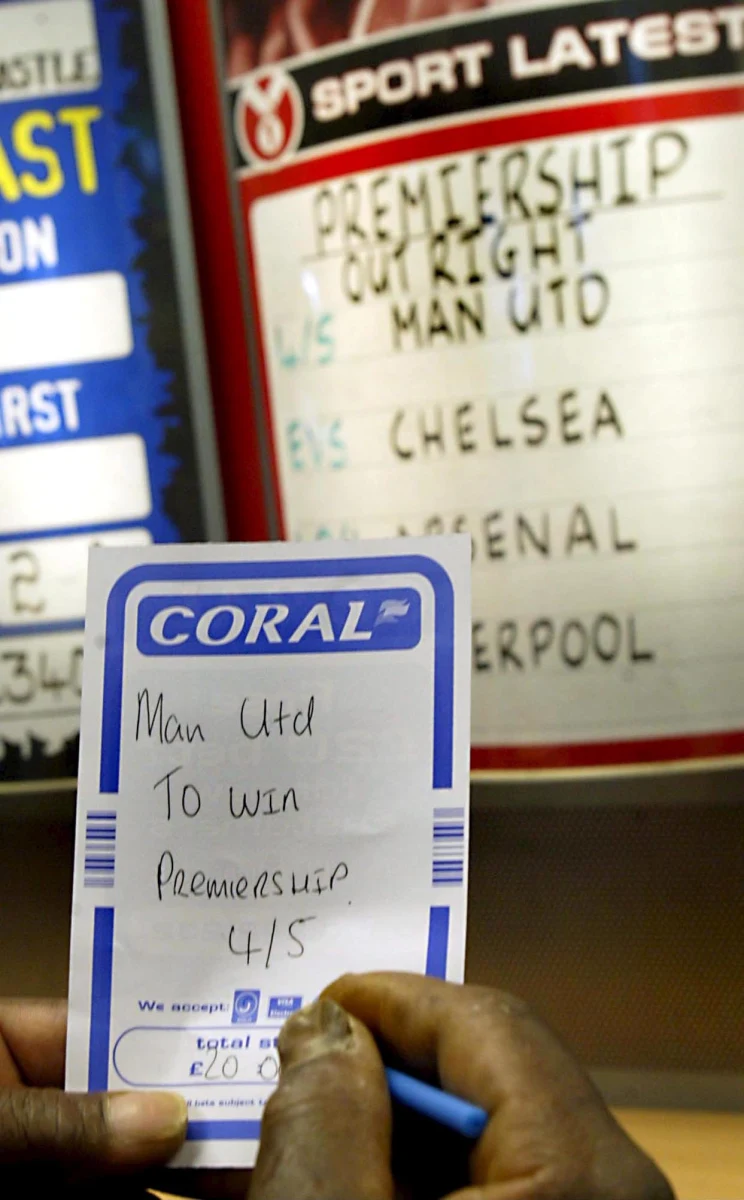 AST
ON
RST
2
340
SPORT LATEST
PREMIERSHIP
OUTRIGHT
4/5 MAN UTD
EVS CHELSEA
ARSENAL
ERPOOL
CORAL
Man Utd
To win
PREMIERSHIP
4/5
We accept:
total st
£20 0